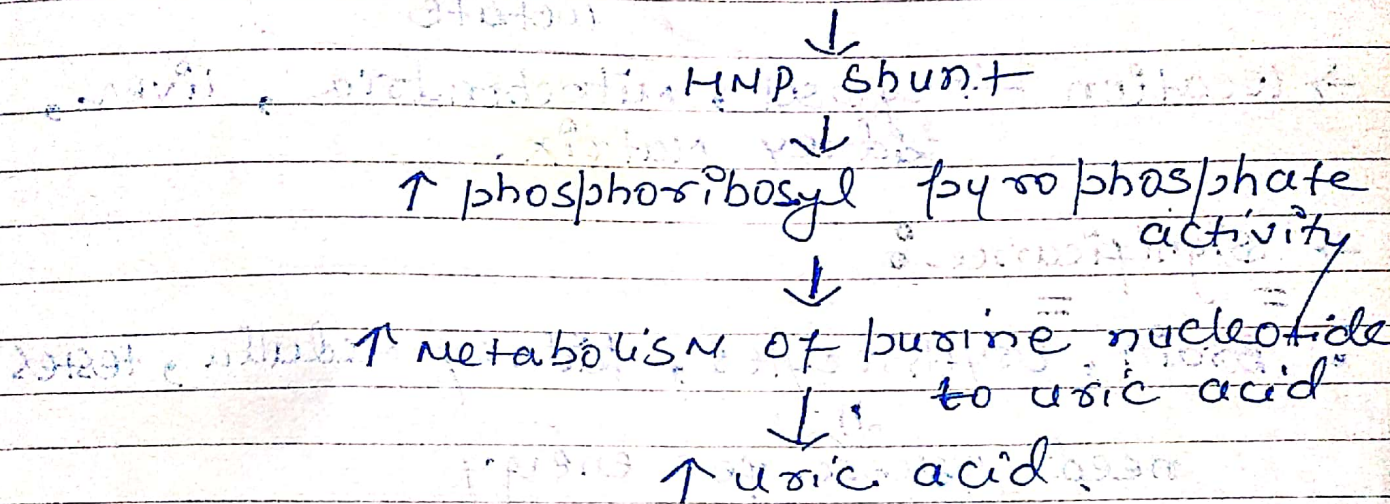 ↓
HMP. Shunt
↓
↑ phosphoribosyl pyrophosphate
activity
↓
↑ Metabolism of purine nucleotide
to uric acid
↓
↑ uric acid.